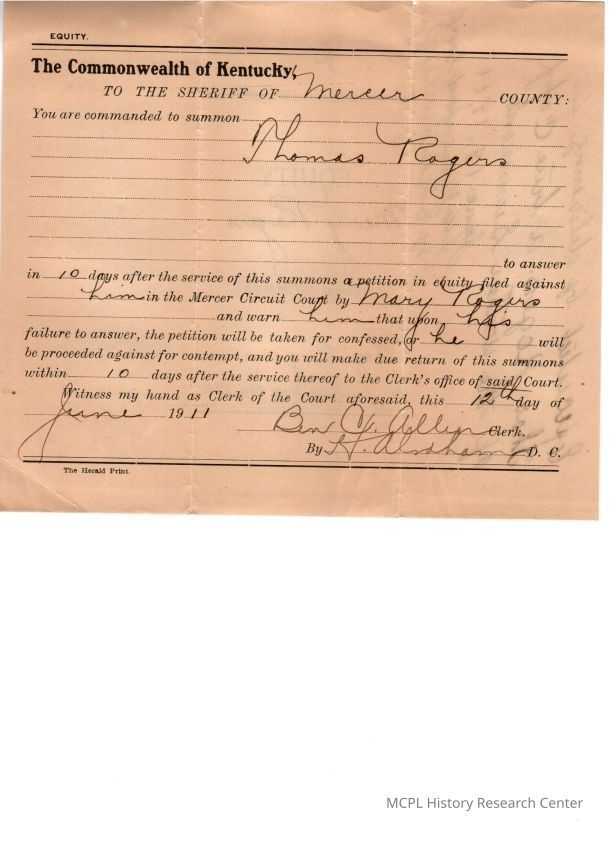 EQUITY.
The Commonwealth of Kentucky,
TO THE SHERIFF OF Mercer COUNTY:
You are commanded to summon
Thomas Rogers
to answer
in 10 days after the service of this summons a petition in equity filed against
him in the Mercer Circuit Court by Mary Rogers
and warn him that upon his
failure to answer, the petition will be taken for confessed, or he will
be proceeded against for contempt, and you will make due return of this summons
within 10 days after the service thereof to the Clerk's office of said Court.
Witness my hand as Clerk of the Court aforesaid, this 12th day of
June 1911 Ben C. Allin Clerk.
By H. Abraham D. C.
The Herald Print.
MCPL History Research Center